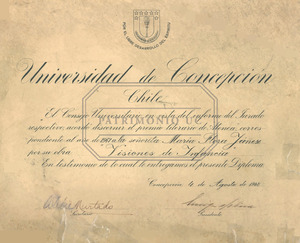 POR EL LIBRE DESARROLLO DEL ESPIRITU
Universidad de Concepción
Chile
PATRIMONIO UC
El Consejo Universitario en vista del informe del Jurado
respectivo, acordó discernir el premio literario de Atenea, corres
pondiente al año de 1947 a la señorita María Flora Yáñez
por su obra Visiones de Infancia
En testimonio de lo cual le entregamos el presente Diploma.
Concepción, 4 de Agosto de 1948.